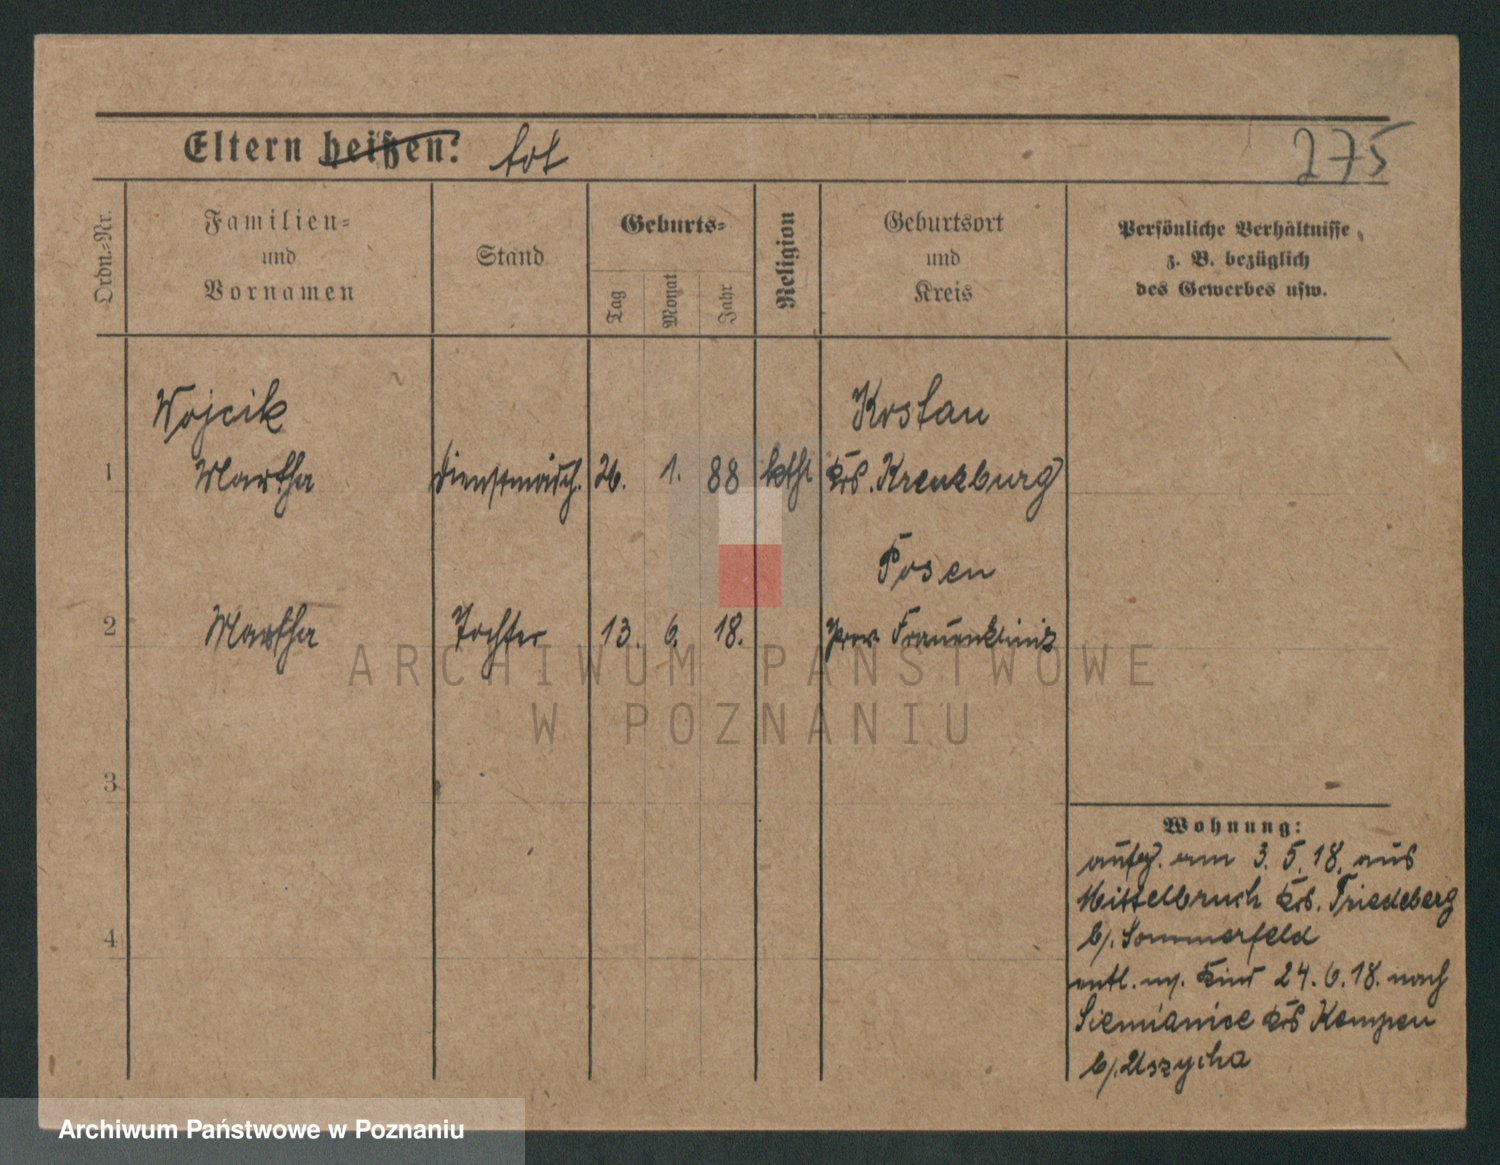 Eltern heißen: tot
275
Ordn.-Nr.
Familien-
und
Vornamen
Stand
Geburts-
Tag
Monat
Jahr
Religion
Geburtsort
und
Kreis
Persönliche Verhältnisse
z. B. bezüglich
des Gewerbes usw.
Wojcik
Kostau
1 Martha Dienstmädch. 26. 1. 88 kthl Krs. Kreuzburg
Posen
2 Martha Tochter 13. 6. 18. Prov. Frauenklinik
3
4
Wohnung:
aufg. am 3. 5. 18. aus
Mittelbruch Krs. Friedeberg
b/. Sommerfeld
entl. m. Kind 24. 6. 18. nach
Siemianice Krs Kempen
b/. Uszycha
ARCHIWUM PAŃSTWOWE
W POZNANIU
Archiwum Państwowe w Poznaniu